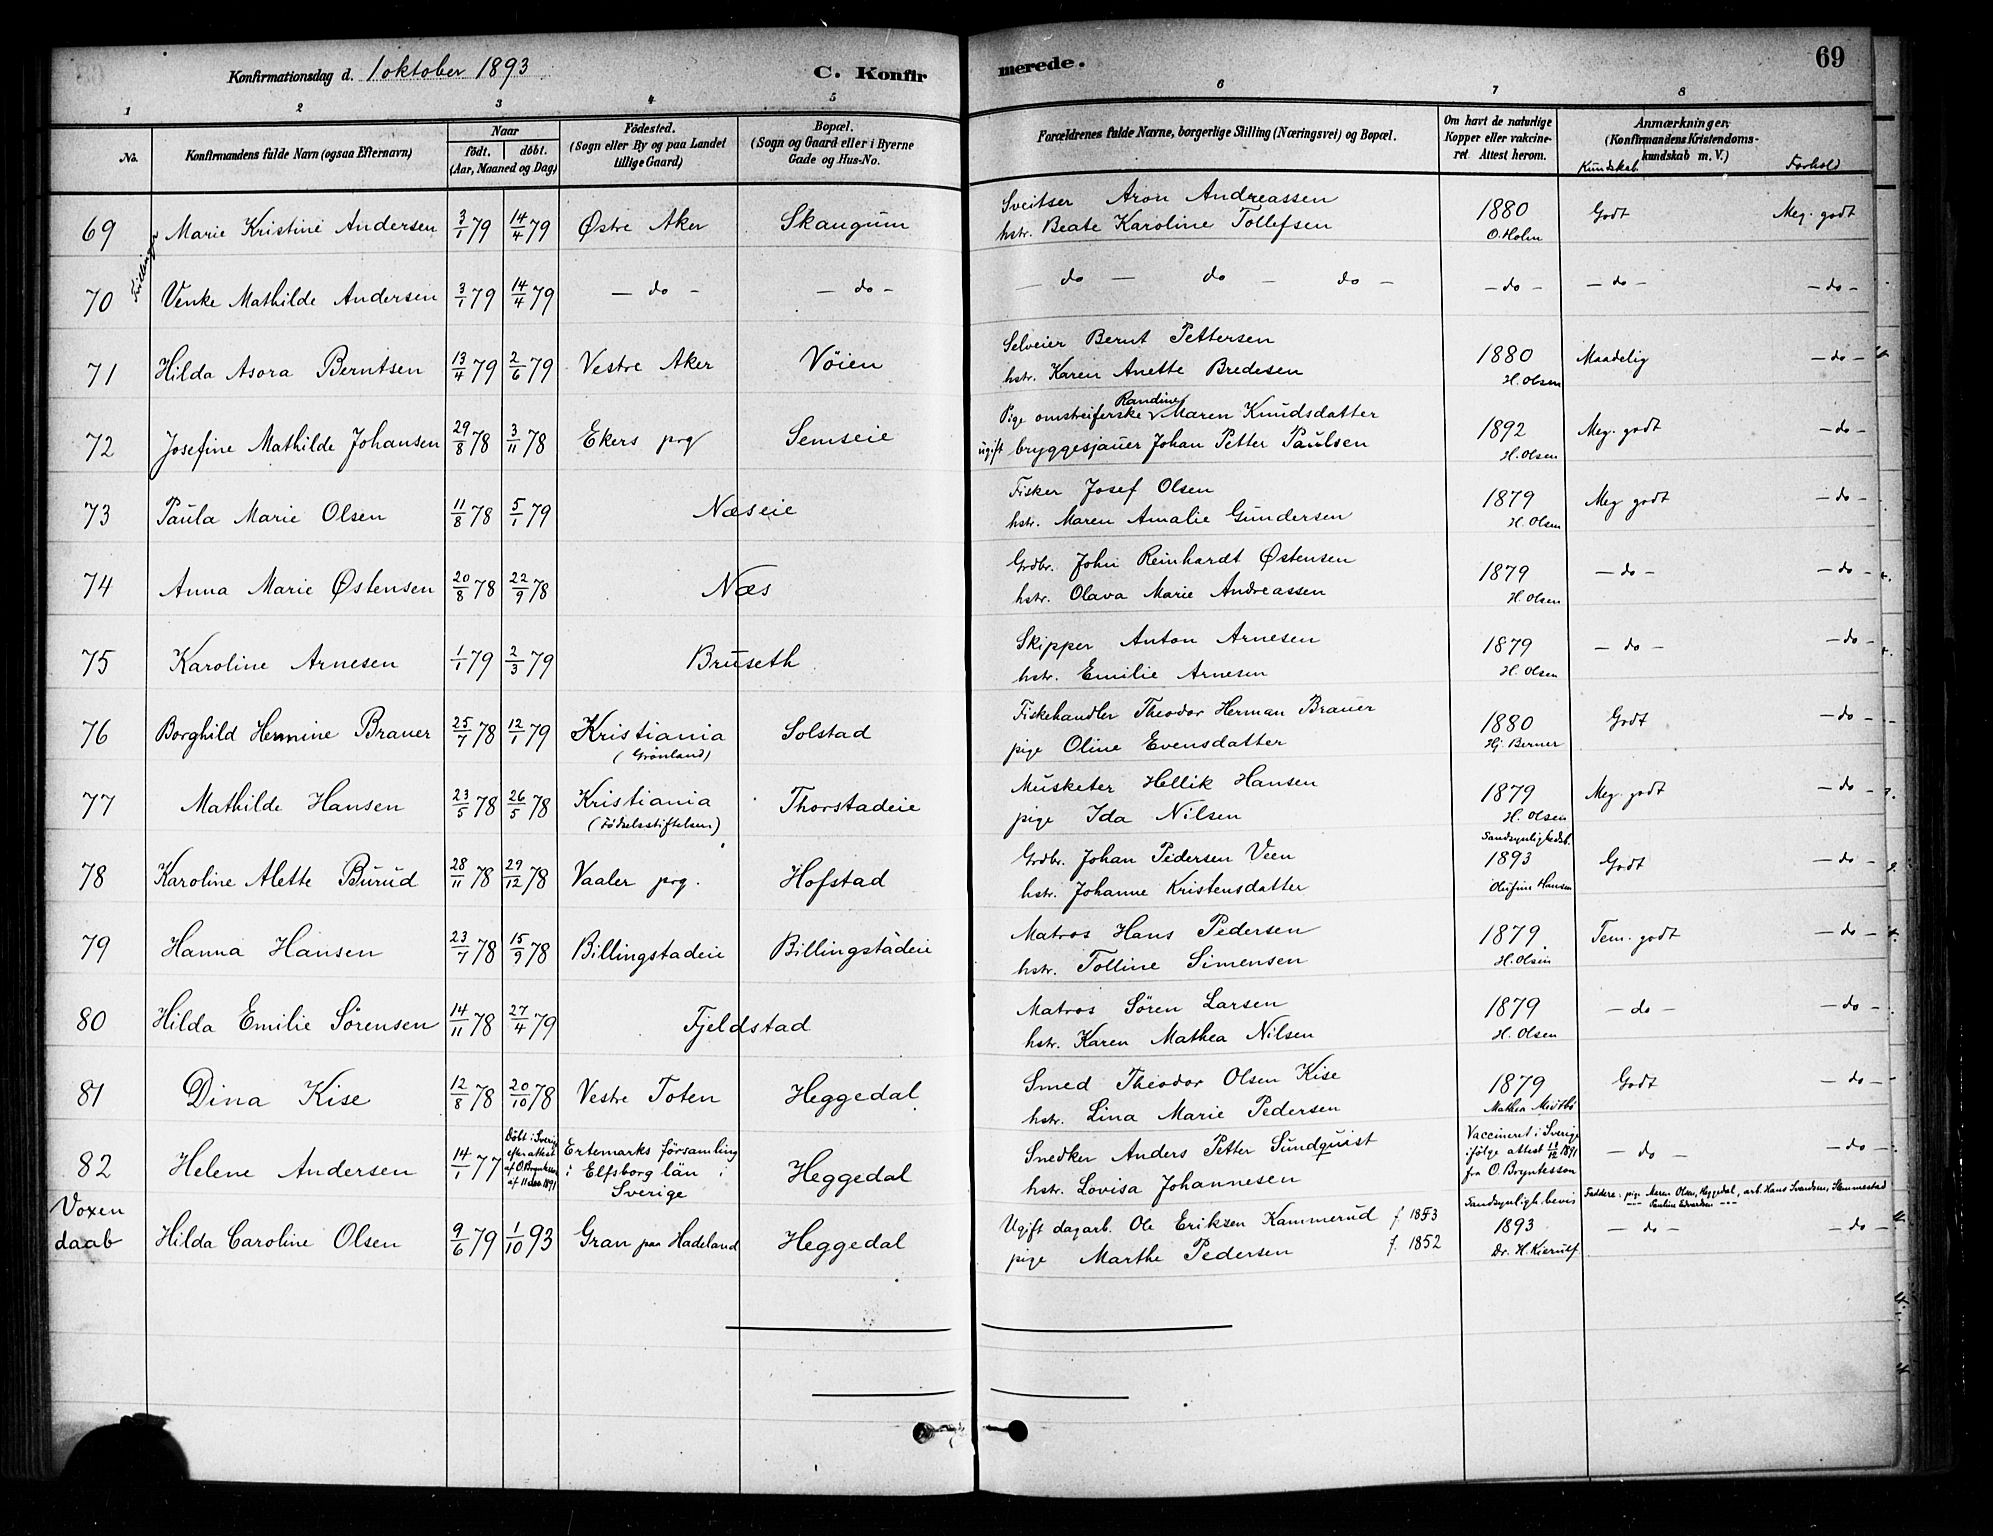 Konfirmationsdag d. 1 oktober 1893 C. Konfirmerede. 69
1 2 3 4 5 6 7 8
No. Konfirmandens fulde Navn (ogsaa Efternavn) Naar födt. döbt. (Aar, Maaned og Dag) Födested. (Sogn eller By og paa Landet tillige Gaard) Bopæl. (Sogn og Gaard eller i Byerne Gade og Hus-No. Forældrenes fulde Navne, borgerlige Stilling (Næringsvei) og Bopæl. Om havt de naturlige Kopper eller vakcineret. Attest herom. Anmærkninger. (Konfirmandens Kristendomskundskab m. V.) Kundskab. Forhold
69 Marie Kristine Andersen 3/1 79 14/4 79 Østre Aker Skaugum Sveitser Aron Andreassen hstr. Beate Karoline Tollefsen 1880 O. Holm Godt Meg. godt
Tvillinger
70 Venke Mathilde Andersen 3/1 79 14/4 79 – do – – do – – do – do – do – – do – – do – – do –
71 Hilda Asora Berntsen 13/4 79 2/6 79 Vestre Aker Vöien Selveier Bernt Pettersen hstr. Karen Anette Bredesen 1880 H. Olsen Maadelig – do –
72 Josefine Mathilde Johansen 29/8 78 3/11 78 Ekers prg Semseie Pige omstreiferske Randine Maren Knudsdatter ugift bryggesjauer Johan Petter Paulsen 1892 H. Olsen Meg. godt – do –
73 Paula Marie Olsen 11/8 78 5/1 79 Næseie Fisker Josef Olsen hstr. Maren Amalie Gundersen 1879 H. Olsen Meg godt – do –
74 Anna Marie Østensen 20/8 78 22/9 78 Næs Grdbr. John Reinhardt Østensen hstr. Olava Marie Andreassen 1879 H. Olsen – do – – do –
75 Karoline Arnesen 1/1 79 2/3 79 Bruseth Skipper Anton Arnesen hstr. Emilie Arnesen 1879 H. Olsen – do – – do –
76 Borghild Hermine Brauer 25/7 78 12/1 79 Kristiania (Grönland) Solstad Fiskehandler Theodor Herman Brauer pige Oline Evensdatter 1880 Hj. Berner Godt – do –
77 Mathilde Hansen 23/5 78 26/5 78 Kristiania (Födselsstiftelsen) Thorstadeie Musketer Hellik Hansen pige Ida Nilsen 1879 H. Olsen Meg. godt – do –
78 Karoline Alette Burud 28/11 78 29/12 78 Vaaler prg. Hofstad Grdbr. Johan Pedersen Veen hstr. Johanne Kristensdatter Sandsynlighedsb. 1893 Olufine Hansen Godt – do –
79 Hanna Hansen 23/7 78 15/9 78 Billingstadeie Billingstadeie Matros Hans Pedersen hstr. Tolline Simensen 1879 H. Olsen Tem. godt – do –
80 Hilda Emilie Sörensen 14/11 78 27/4 79 Fjeldstad Matros Sören Larsen hstr. Karen Mathea Nilsen 1879 H. Olsen – do – – do –
81 Dina Kise 12/8 78 20/10 78 Vestre Toten Heggedal Smed Theodor Olsen Kise hstr. Lina Marie Pedersen 1879 Mathea Godt – do –
82 Helene Andersen 14/1 77 Döbt i Sverige efter attest af O. Bryntesson af 11 1891 Ertemarks församling i Elfsborg län i Sverige Heggedal Snedker Anders Petter Sundquist hstr. Lovisa Johannesen Vaccineret i Sverige ifölge attest 11/12 1891 fra O. Bryntesson – do – – do –
Voxen daab Hilda Caroline Olsen 9/6 79 1/10 93 Gran paa Hadeland Heggedal Ugift dagarb. Ole Eriksen Kammerud f 1853 pige Marthe Pedersen f. 1852 Sandsynligh. bevis 1893 Dr. H. Kierulf Faddere: pige Maren Olsen, Heggedal, arb. Hans Svendsen, Slemmestad Pauline Edvardsen – do – – do –